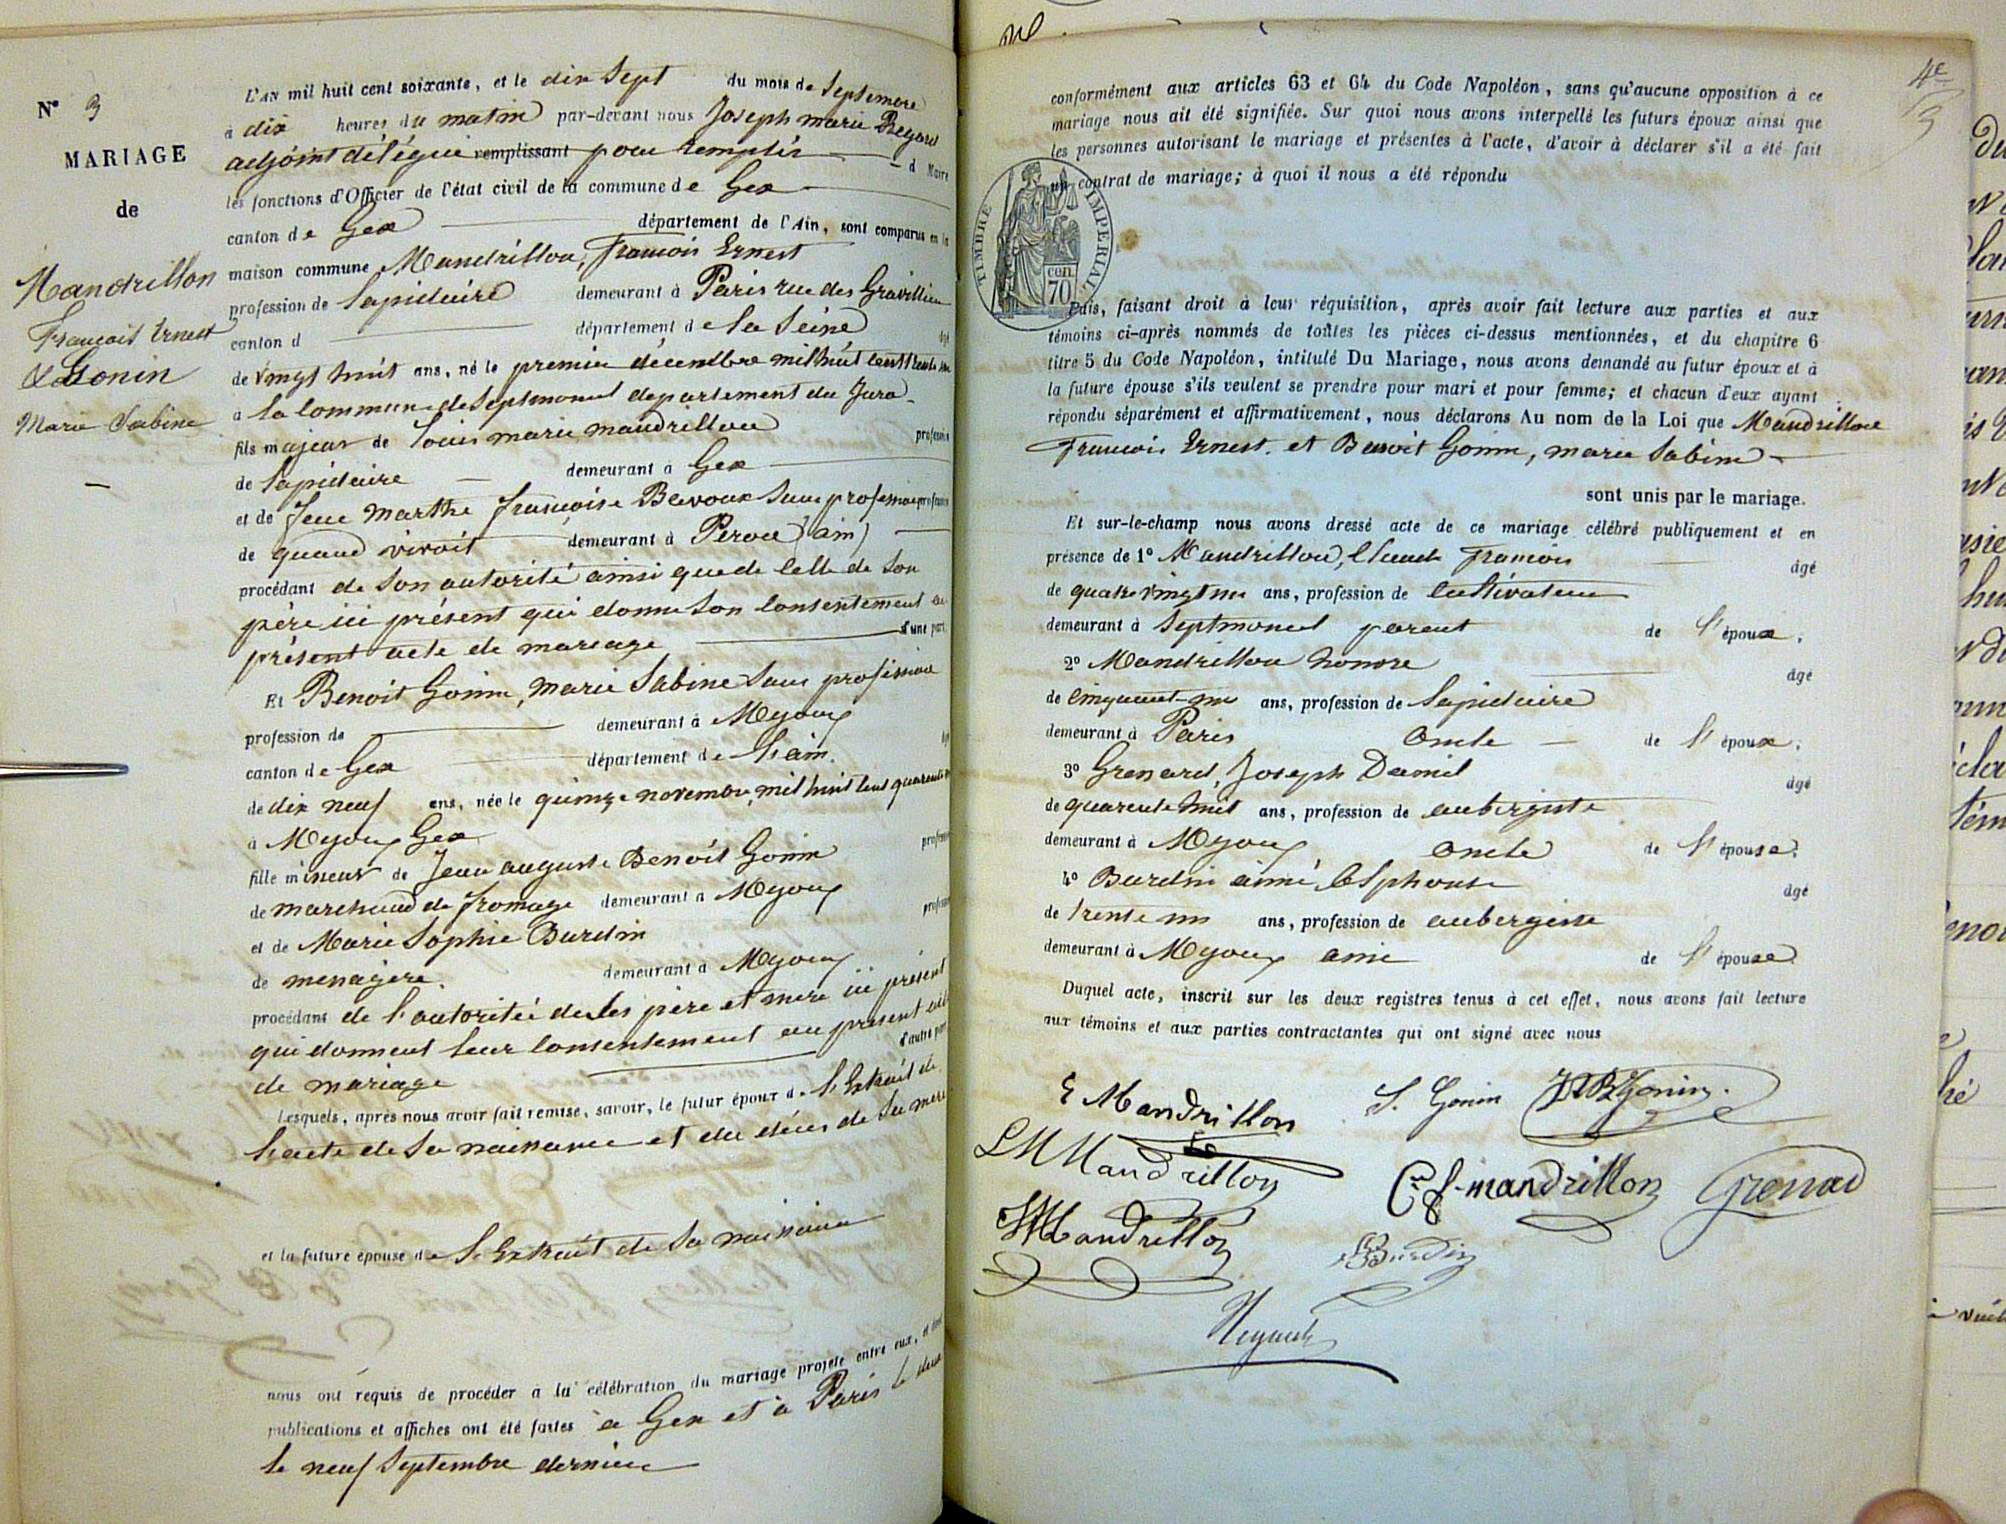 N° 3
MARIAGE
de
Mandrillon
François Ernest
& Gonin
Marie Sabine
L'AN mil huit cent soixante, et le dix sept du mois de Septembre
à dix heures du matin par-devant nous Joseph marie Regard
adjoint délégué remplissant pour remplir d Maire
les fonctions d'Officier de l'état civil de la commune de Gex
canton de Gex département de l'Ain, sont comparus en la
maison commune Mandrillon, françois Ernest
profession de lapidaire demeurant à Paris rue des Gravillier
canton d département de la Seine âgé
de vingt huit ans, né le premier décembre mil huit cent trente
à la commune de Septmoncel departement du Jura
fils majeur de Louis marie mandrillon profession
de lapidaire demeurant à Gex
et de Jeue marthe françoise Benoit Sans profession profession
de quand vivoit demeurant à Peron (ain)
procédant de son autorité ainsi que de celle de son
père ici présent qui donne son consentement au
présent acte de mariage d'une part.
Et Benoit Gonin, marie Sabine Sans profession
profession de demeurant à Mijoux
canton de Gex département de l'ain.
de dix neuf ans, née le quinze novembre mil huit cent quarante
à Mijoux Gex
fille mineur de Jean auguste Benoit Gonin profession
de marchand de fromage demeurant à Mijoux
et de Marie Sophie Burdin profession
de menagère. demeurant à Mijoux
procédant de l'autorité de ses père et mere ici présent
qui donnent leur consentement au présent acte
de mariage d'autre part
Lesquels, après nous avoir fait remise, savoir, le futur époux de l'Extrait de
l'acte de sa naissance et du décès de sa mere
et la future épouse de l'Extrait de sa naissance
nous ont requis de procéder à la célébration du mariage projeté entre eux, et dont
publications et affiches ont été faites à Gex et à Paris le deux
le neuf Septembre dernier
4e
3
conformément aux articles 63 et 64 du Code Napoléon, sans qu'aucune opposition à ce
mariage nous ait été signifiée. Sur quoi nous avons interpellé les futurs époux ainsi que
les personnes autorisant le mariage et présentes à l'acte, d'avoir à déclarer s'il a été fait
un contrat de mariage; à quoi il nous a été répondu
TIMBRE IMPERIAL
cen.
70
Puis, faisant droit à leur réquisition, après avoir fait lecture aux parties et aux
témoins ci-après nommés de toutes les pièces ci-dessus mentionnées, et du chapitre 6
titre 5 du Code Napoléon, intitulé Du Mariage, nous avons demandé au futur époux et à
la future épouse s'ils veulent se prendre pour mari et pour femme; et chacun d'eux ayant
répondu séparément et affirmativement, nous déclarons Au nom de la Loi que Mandrillon
François Ernest. et Benoit Gonin, marie Sabine
sont unis par le mariage.
Et sur-le-champ nous avons dressé acte de ce mariage célébré publiquement et en
présence de 1° Mandrillon, Claude François âgé
de quatre vingt un ans, profession de cultivateur
demeurant à Septmoncel parent de l'époux.
2° Mandrillon honore âgé
de cinquante un ans, profession de lapidaire
demeurant à Paris Oncle de l'époux.
3° Grenard, Joseph Daniel âgé
de quarente huit ans, profession de aubergiste
demeurant à Mijoux Oncle de l'épouse.
4° Burdin aimé Alphonse âgé
de trente un ans, profession de aubergiste
demeurant à Mijoux ami de l'épouse
Duquel acte, inscrit sur les deux registres tenus à cet effet, nous avons fait lecture
aux témoins et aux parties contractantes qui ont signé avec nous
E Mandrillon S. Gonin JABGonin.
LM Mandrillon Cde f. mandrillon Grenard
HMandrillon Burdin
Regard